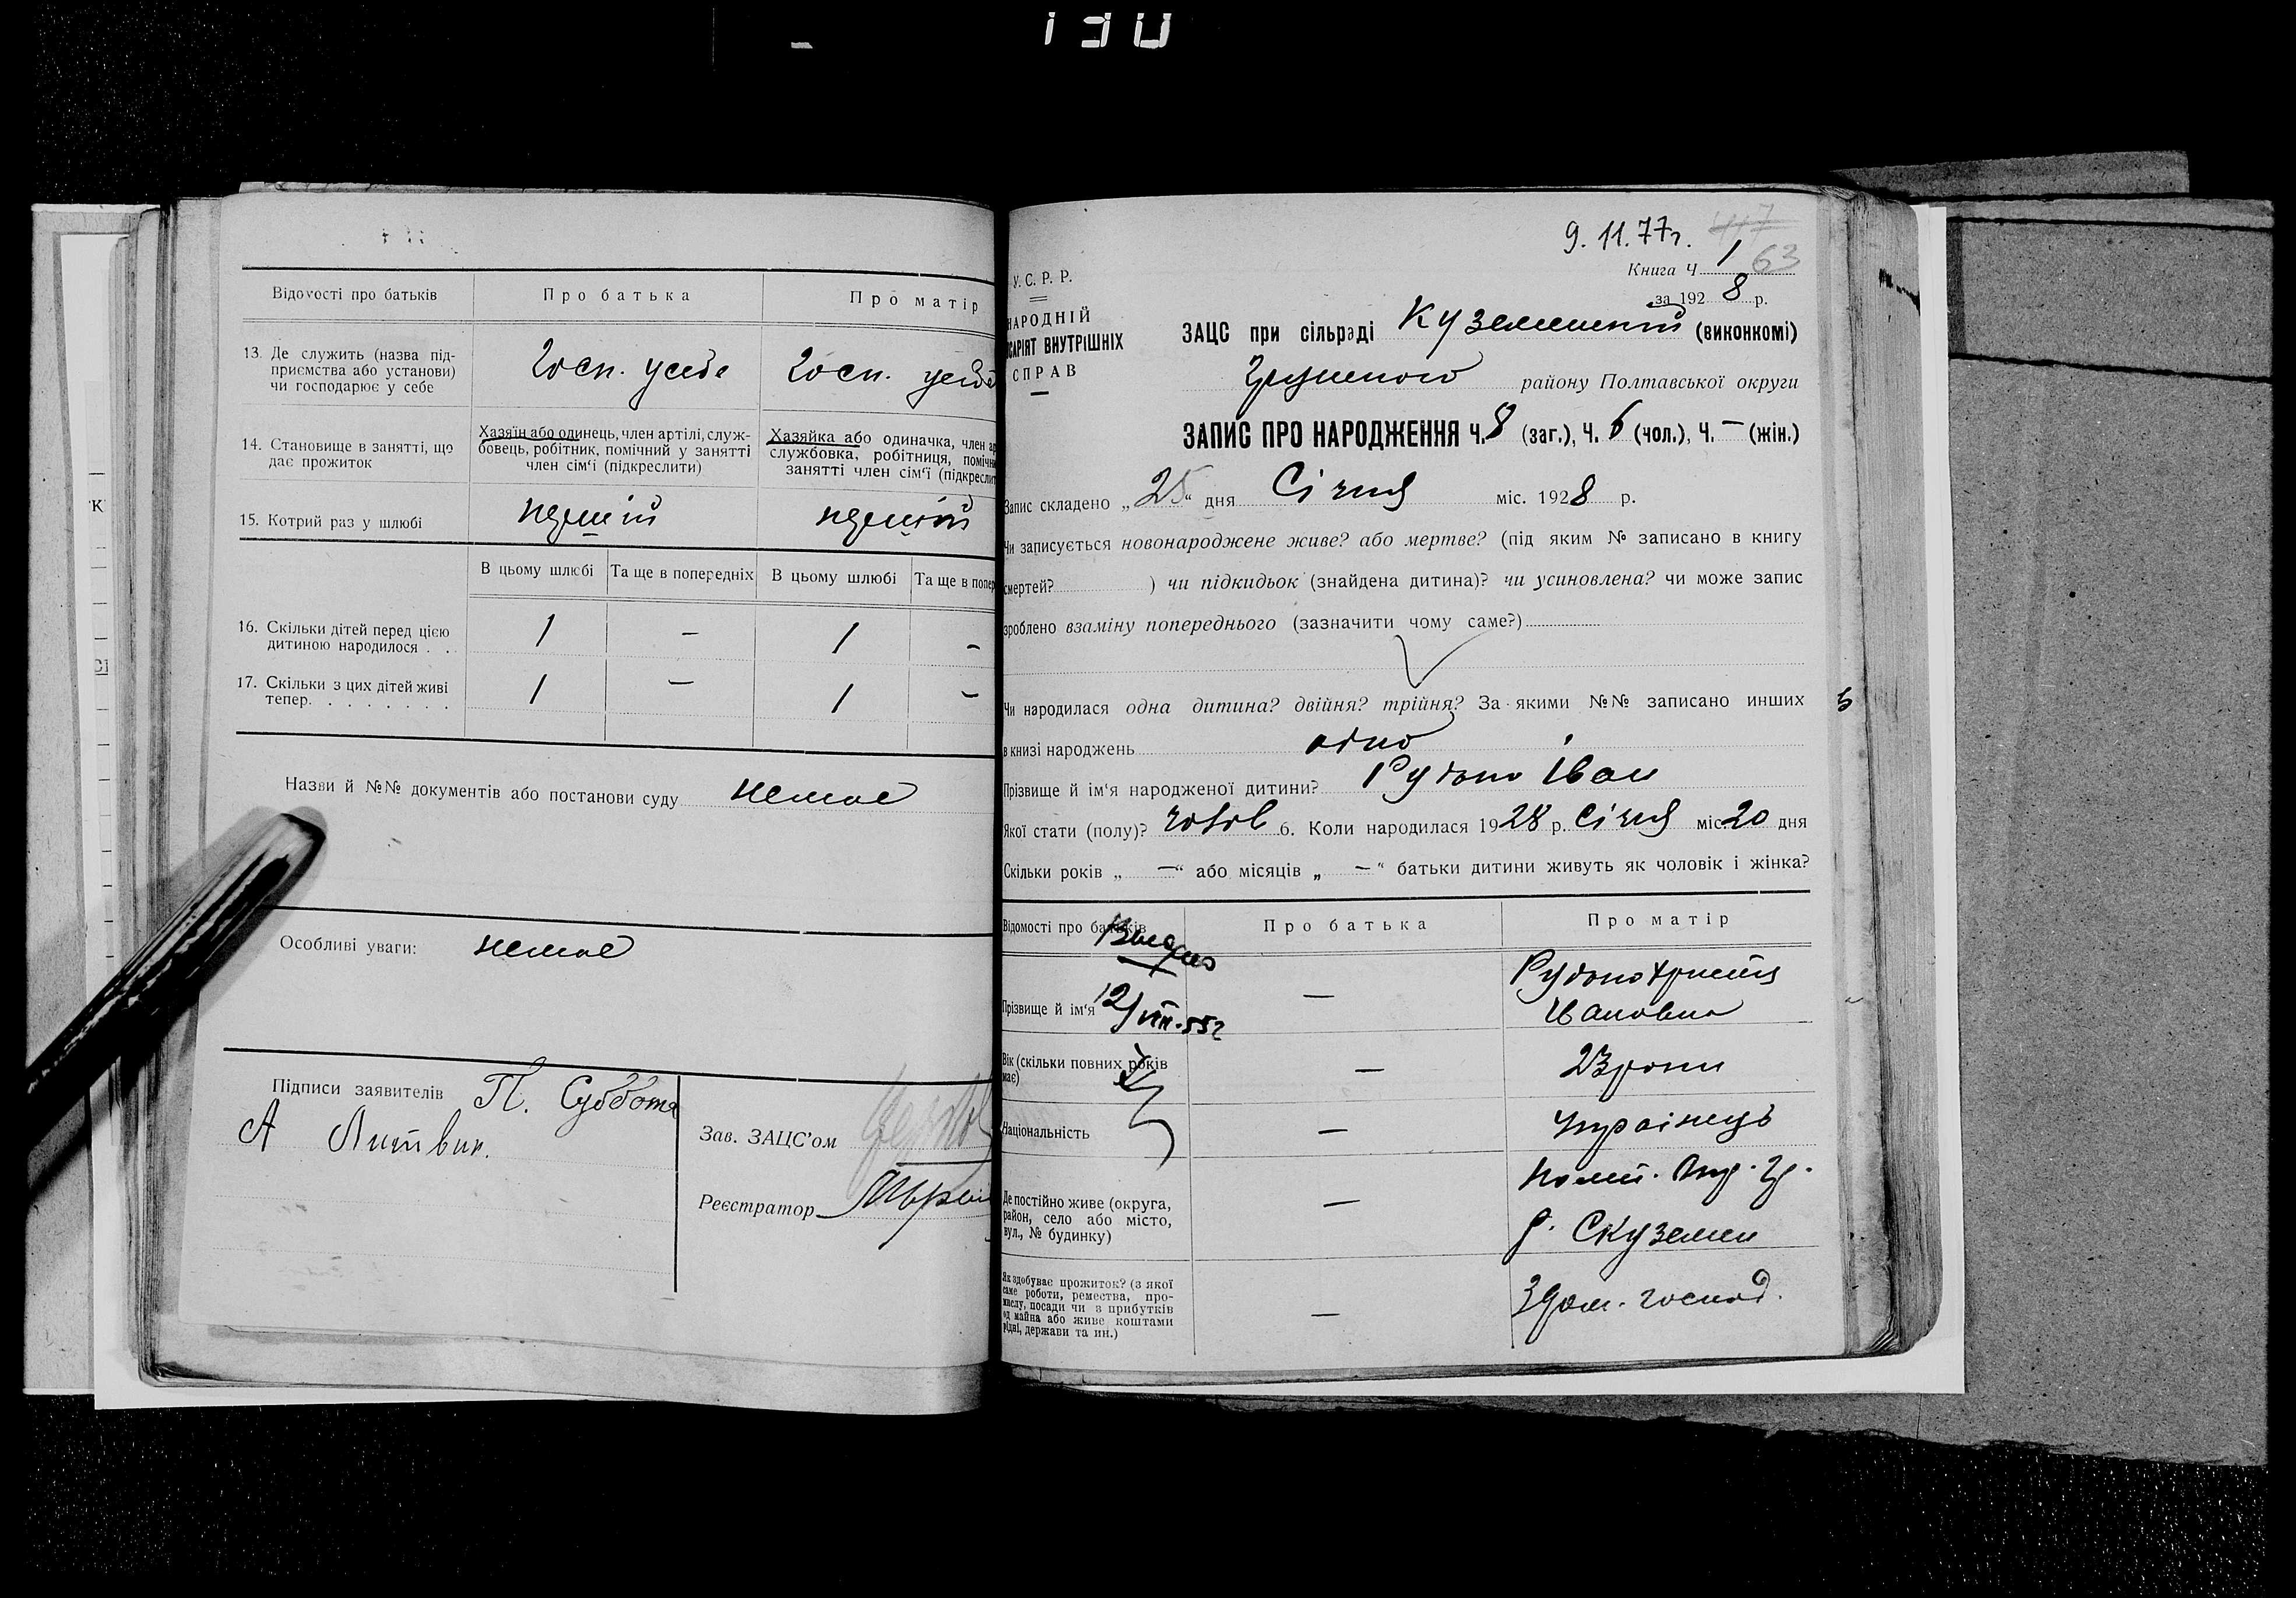 130
Відомості про батьків
Про батька
Про матір
13. Де служить (назва під-
приємства або установи)
чи господарює у себе
госп. усебе
госп. усебе
14. Становище в занятті, що
дає прожиток
Хазяїн або одинець, член артілі, служ-
бовець, робітник, помічний у занятті
член сім'ї (підкреслити)
Хазяйка або одиначка, член ар
службовка, робітниця, помічн
занятті член сім'ї (підкреслит
15. Котрий раз у шлюбі
перший
перший
В цьому шлюбі
Та ще в попередніх
В цьому шлюбі
Та ще в попер
16. Скільки дітей перед цією
дитиною народилося . .
1 — 1 -
17. Скільки з цих дітей живі
тепер. . . . . . . .
1 — 1 -
Назви й №№ документів або постанови суду немає
Особливі уваги: немає
Підписи заявителів П. Суббота
А Литвин.
Зав. ЗАЦС'ом
Реєстратор
9. 11. 77г.
417
63
Книга Ч 1
за 1928 р.
У. С. Р. Р.
НАРОДНІЙ
САРІЯТ ВНУТРІШНІХ
СПРАВ
ЗАЦС при сільраді Куземинській (виконкомі)
району Полтавської округи
ЗАПИС ПРО НАРОДЖЕННЯ Ч. 8 (заг.), Ч. 6 (чол.), Ч. — (жін.)
Запис складено „25“ дня Січня міс. 1928 р.
Чи записується новонароджене живе? або мертве? (під яким № записано в книгу
смертей? ) чи підкидьок (знайдена дитина)? чи усиновлена? чи може запис
зроблено взаміну попереднього (зазначити чому саме?)
Чи народилася одна дитина? двійня? трійня? За якими №№ записано инших
в книзі народжень одно
Прізвище й ім'я народженої дитини? Рудько Іван
Якої стати (полу)? чолов 6. Коли народилася 1928 р. Січня міс. 20 дня
Скільки років „ — “ або місяців „ — “ батьки дитини живуть як чоловік і жінка?
Відомості про батьків
Про батька
Про матір
Прізвище й ім'я
12/VIII-55г
—
Ивановна
Вік (скільки повних років
має)
—
23 роки
Національність
—
Українець
Де постійно живе (округа,
район, село або місто,
вул., № будинку)
—
Полт. Окр. Гр.
р. С Куземен
Як здобуває прожиток? (з якої
саме роботи, ремества, про-
мислу, посади чи з прибутків
од майна або живе коштами
рідні, держави та ин.)
—
З дом. господ.